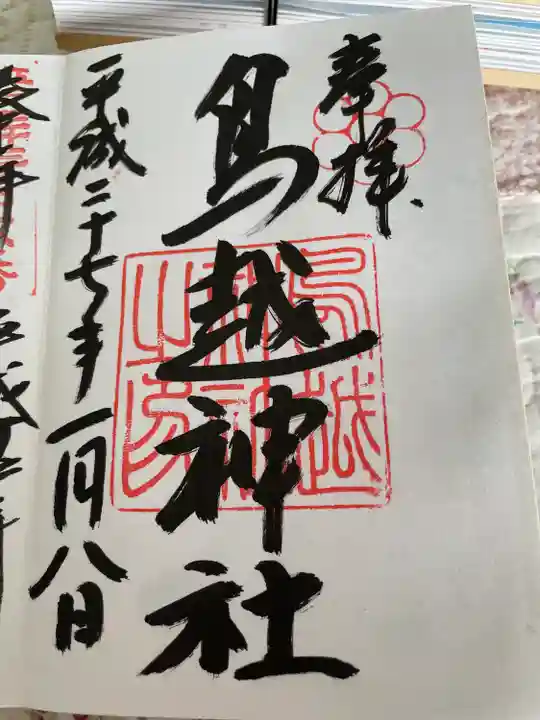 奉拝
鳥越神社
鳥越
神社
之印
平成二十七年一月八日